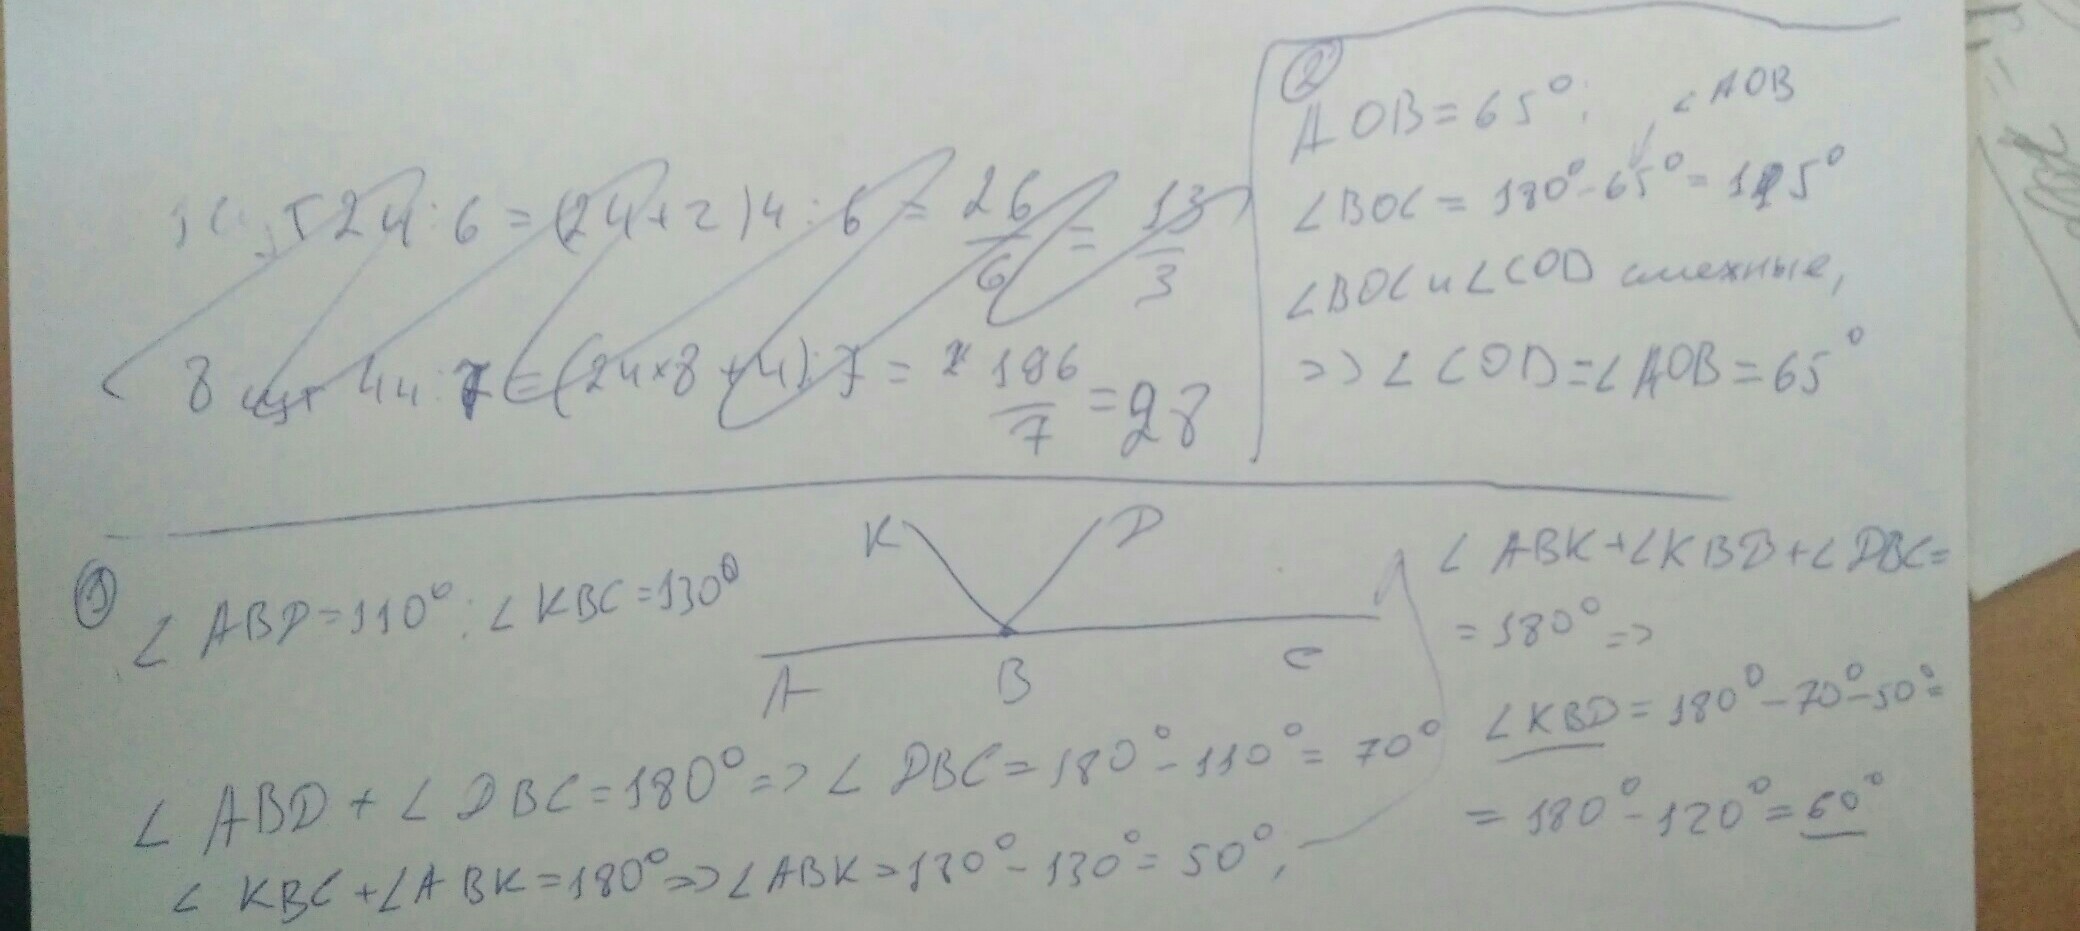 24 : 6 = (24 + 2) 4 : 6 = 26/6 = 13/3
8 шт 4ч : 7 = (24 × 8 + 4) : 7 = 196/7 = 28
②
AOB = 65°; ∠AOB
∠BOC = 180° - 65° = 115°
∠BOC и ∠COD смежные,
=> ∠COD = ∠AOB = 65°
①
∠ABD = 110°; ∠KBC = 130°
K D
A B C
∠ABD + ∠DBC = 180° => ∠DBC = 180° - 110° = 70°
∠KBC + ∠ABK = 180° => ∠ABK = 180° - 130° = 50°,
∠ABK + ∠KBD + ∠DBC =
= 180° =>
∠KBD = 180° - 70° - 50° =
= 180° - 120° = 60°